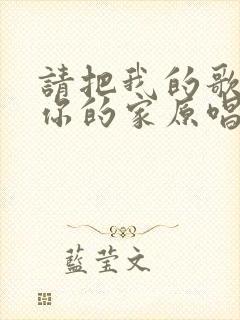 請把我的歌
你的家原唱
藍莹文